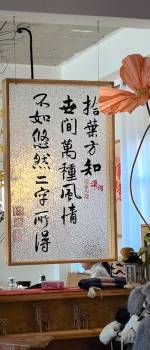 拾葉方知
世间萬種風情
不如悠然二字所得